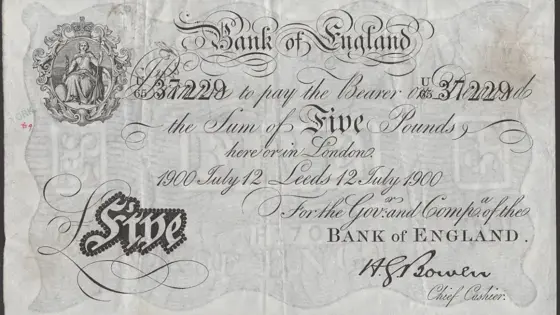 Bank of England
U/65 37229 Promise to pay the Bearer on Demand U/65 37229
the Sum of Five Pounds
here or in London.
1900 July 12 Leeds 12 July 1900
For the Govr. and Compa. of the
BANK of ENGLAND.
£Five
H G Bowen
Chief Cashier.